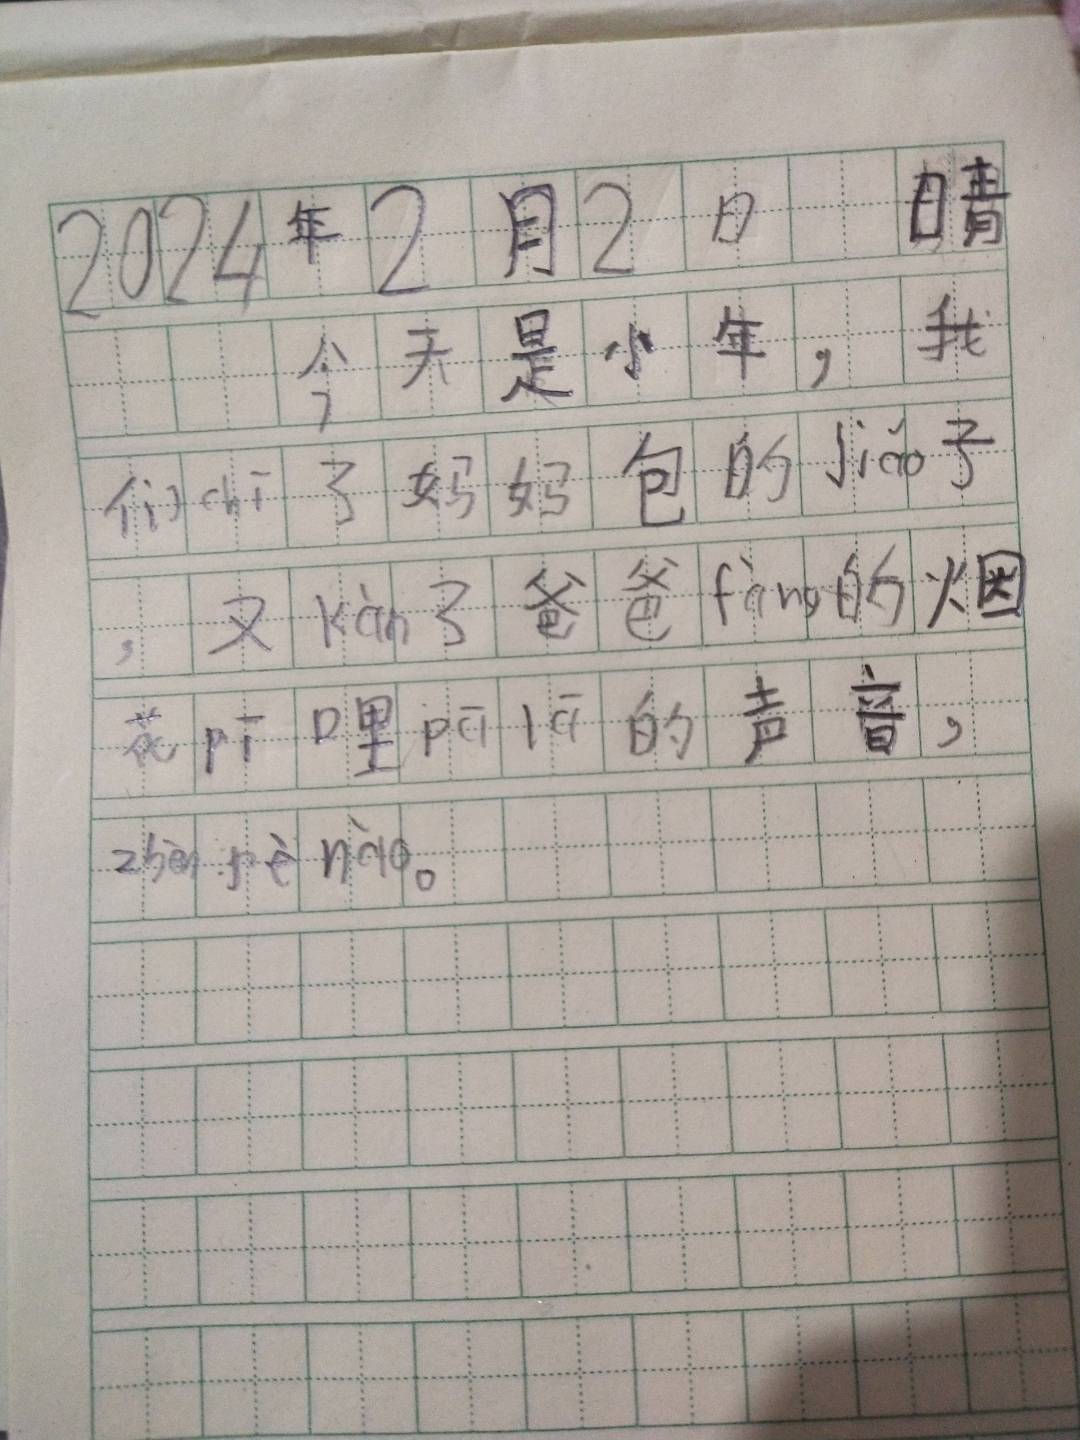 2024年2月2日 晴
今天是小年，我
们chī了妈妈包的Jiǎo子
，又Kàn了爸爸fàng的烟
花pī口里pālā的声音，
zhēn rè nào。